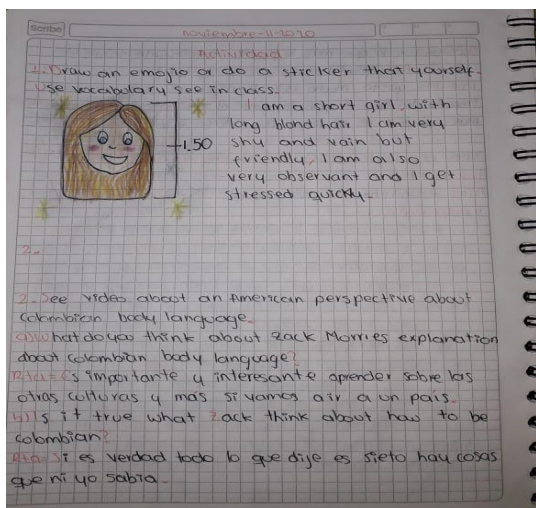 Scribe
noviembre-11-2020
Actividad
1. Draw an emojio or do a sticker that yourself.
Use vocabulary see in class.
I am a short girl, with
long blond hair I am very
1.50
shy and vain but
friendly. I am also
very observant and I get
stressed quickly.
2.
2. See video about an American perspective about
Colombian body language.
a) What do you think about Zack Morries explanation
about colombian body language?
Rta= Es importante y interesante aprender sobre las
otras culturas y mas si vamos air a un pais.
b) Is it true what Zack think about how to be
colombian?
Rta= Si es verdad todo lo que dije es sieto hay cosas
que ni yo sabia.